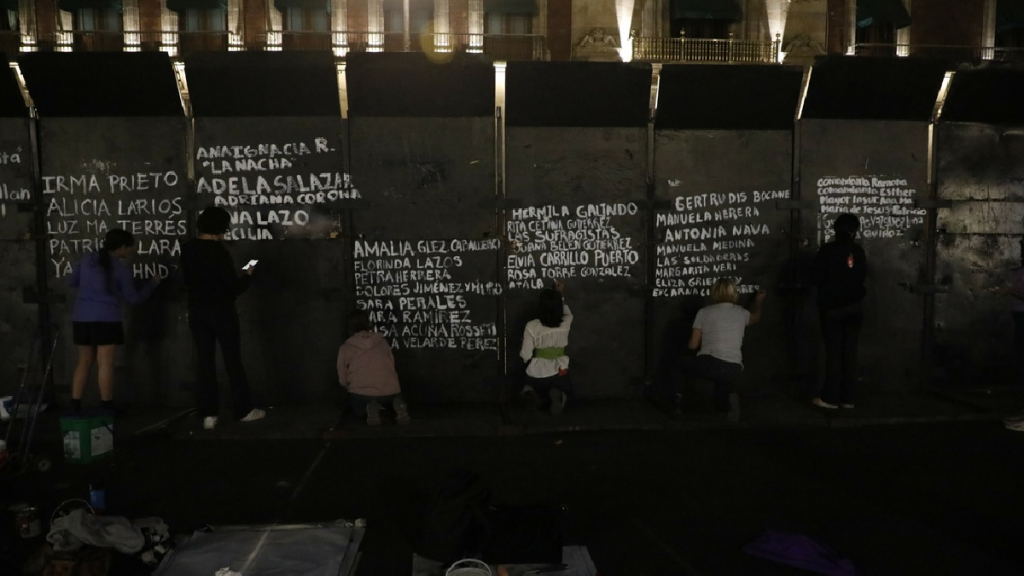 IRMA PRIETO
ALICIA LARIOS
LUZ MA TERRES
LARA
ANA IGNACIA R.
"LA NACHA"
ADELA SALAZAR
ADRIANA CORONA
LAZO
AMALIA GLEZ CABALLERO
FLORINDA LAZOS
PETRA HERRERA
DOLORES JIMÉNEZ Y MURO
SARA PERALES
RAMÍREZ
ACUÑA ROSSETI
VELARDE PEREZ
HERMILA GALINDO
RITA CETINA GUTIÉRREZ
LAS SUFRAGISTAS
JUANA BELEN GUTIERREZ
ELVIA CARRILLO PUERTO
ROSA TORRE GONZÁLEZ
GERTRUDIS BOCANE
MANUELA HERRERA
ANTONIA NAVA
MANUELA MEDINA
LAS SOLDADERAS
MARGARITA NERI
ELIZA
ENCARNA
comandanta Ramona
comandanta Esther
Mayor Insur. Ana Ma
María de Jesús